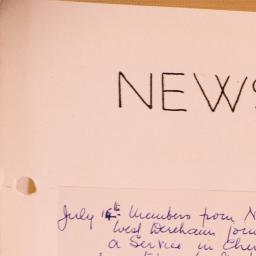 NEWS
July 14th Members from N
West Dereham
a Service in Cher